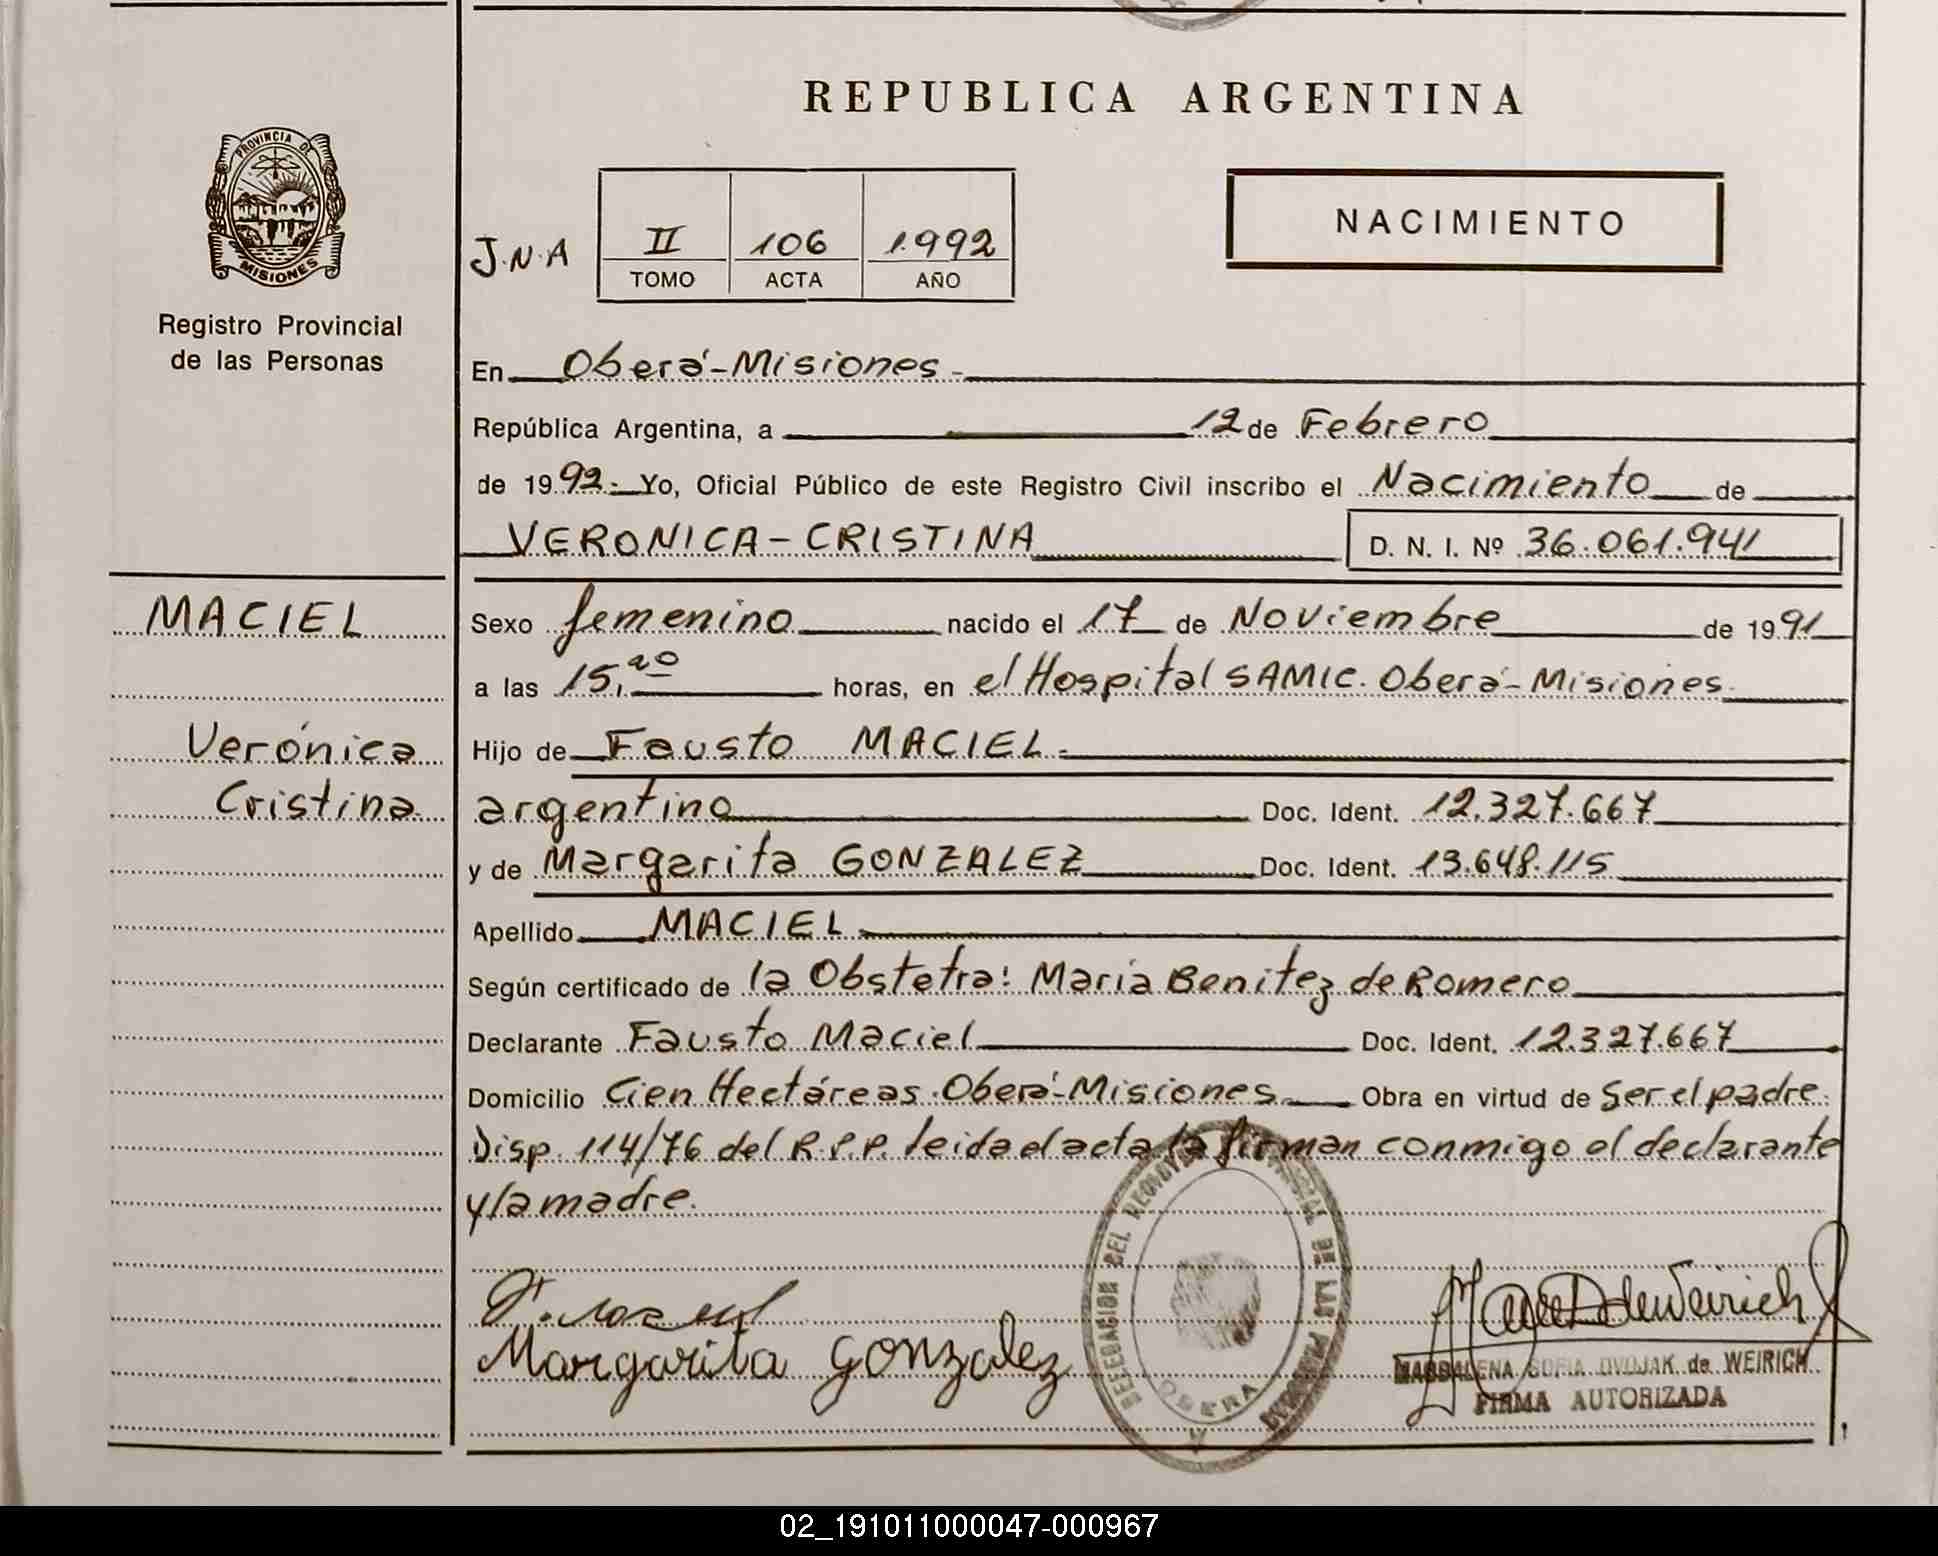 REPUBLICA ARGENTINA
PROVINCIA DE MISIONES
Registro Provincial
de las Personas
J.N.A
II 106 1.992
TOMO ACTA AÑO
NACIMIENTO
En Oberá-Misiones-
República Argentina, a 12 de Febrero
de 1992.- Yo, Oficial Público de este Registro Civil inscribo el Nacimiento de
VERONICA-CRISTINA D. N. I. Nº 36.061.941
MACIEL
Verónica
Cristina.
Sexo femenino nacido el 17 de Noviembre de 1991
a las 15,20 horas, en el Hospital SAMIC. Oberá-Misiones.
Hijo de Fausto MACIEL.-
argentino Doc. Ident. 12.327.667
y de Margarita GONZALEZ Doc. Ident. 13.648.115
Apellido MACIEL.
Según certificado de la Obstetra: María Benitez de Romero
Declarante Fausto Maciel Doc. Ident. 12.327.667
Domicilio Cien Hectáreas.Oberá-Misiones. Obra en virtud de Ser el padre.
Disp. 114/76 del R.P.P. leida el acta la firman conmigo el declarante
y la madre.
Margarita gonzalez
DELEGACION DEL REGISTRO PROVINCIAL DE LAS PERSONAS
OBERA
MAGDALENA SOFIA DVOJAK de WEIRICH
FIRMA AUTORIZADA
02_191011000047-000967